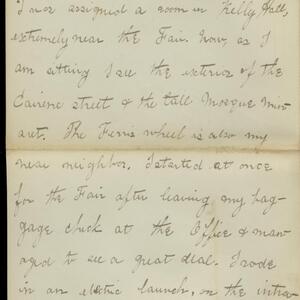 I was assigned a room in Kelly Hall,
extremely near the Fair. Now, as I
am sitting I see the exterior of the
Cairene street & the tall Mosque Min-
aret. The Ferris wheel is also my
near neighbor. I started at once
for the Fair after leaving my bag-
gage check at the Office & man-
aged to see a great deal. I rode
in an electric launch, on the intra-